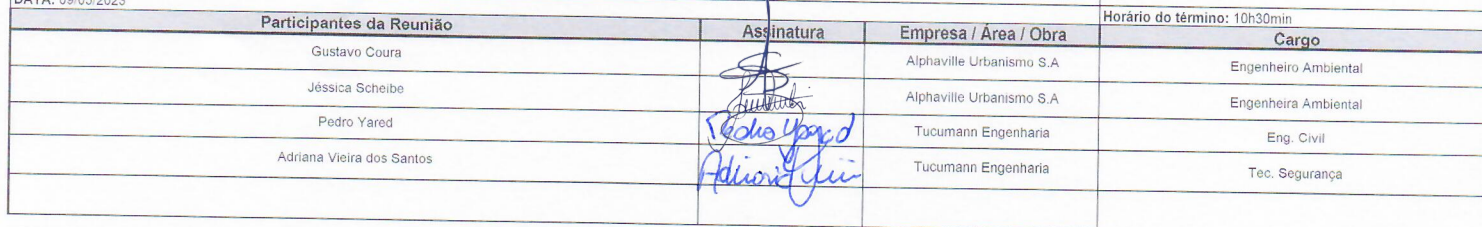 DATA: 09/05/2023
Horário do término: 10h30min
Participantes da Reunião Assinatura Empresa / Área / Obra Cargo
Gustavo Coura Alphaville Urbanismo S.A Engenheiro Ambiental
Jéssica Scheibe Alphaville Urbanismo S.A Engenheira Ambiental
Pedro Yared Pedro Yared Tucumann Engenharia Eng. Civil
Adriana Vieira dos Santos Tucumann Engenharia Tec. Segurança